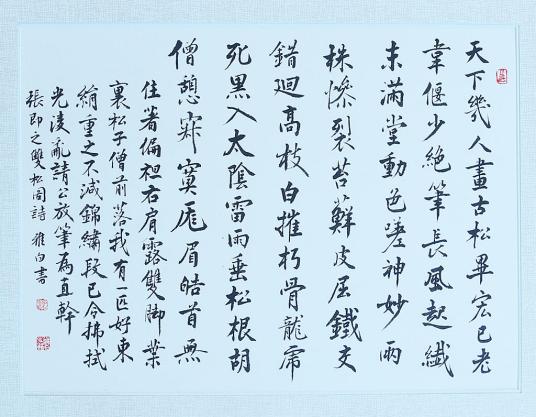 天下幾人畫古松畢宏已老
韋偃少絕筆長風起纖
末滿堂動色蹉神妙兩
株慘裂苔蘚皮屈鐵交
錯迴高枝白摧朽骨龍虎
死黑入太陰雷雨垂松根胡
僧憩寂寞厖眉皓首無
住著偏袒右肩露雙脚葉
裏松子僧前落我有一匹好東
絹重之不減錦繡段已令拂拭
光淩亂請公放筆為直幹
張即之雙松圖詩 雅白書